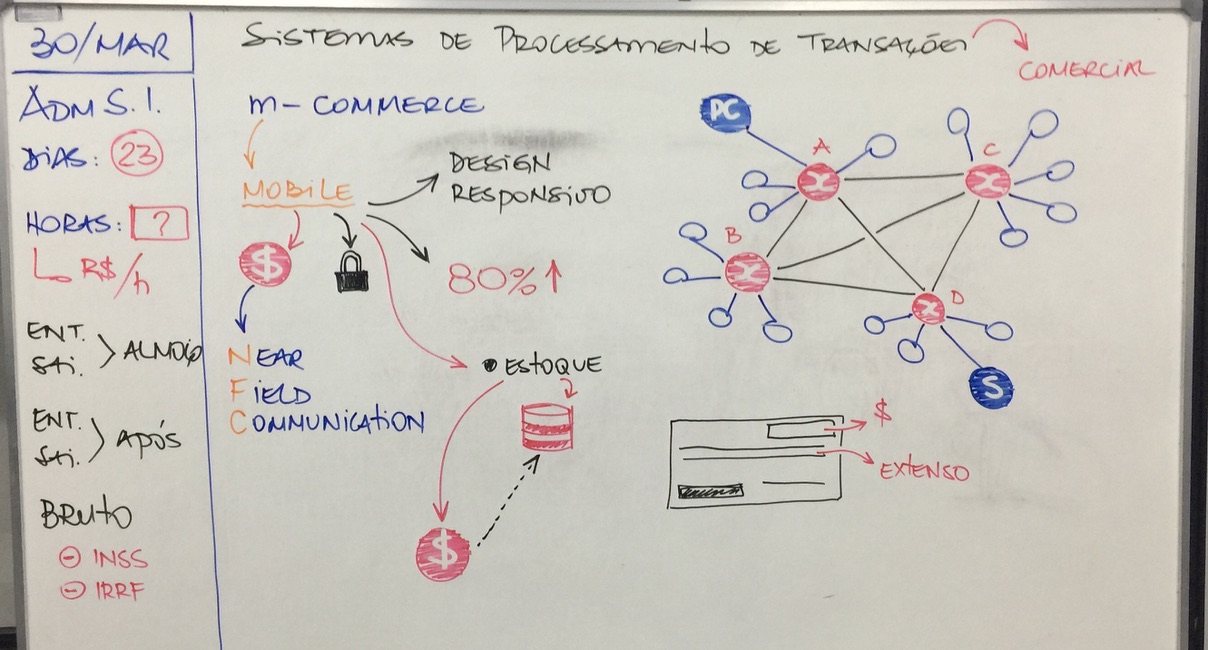 30/MAR
ADM S.I.
DIAS: 23
HORAS: ?
R$/h
ENT.
SAI.
ALMOÇO
ENT.
SAI.
APÓS
BRUTO
- INSS
- IRRF
SISTEMAS DE PROCESSAMENTO DE TRANSAÇÕES
COMERCIAL
M-COMMERCE
MOBILE
DESIGN
RESPONSIVO
$
80%↑
NEAR
FIELD
COMMUNICATION
• ESTOQUE
$
PC
A
C
B
D
X
X
X
X
S
$
EXTENSO